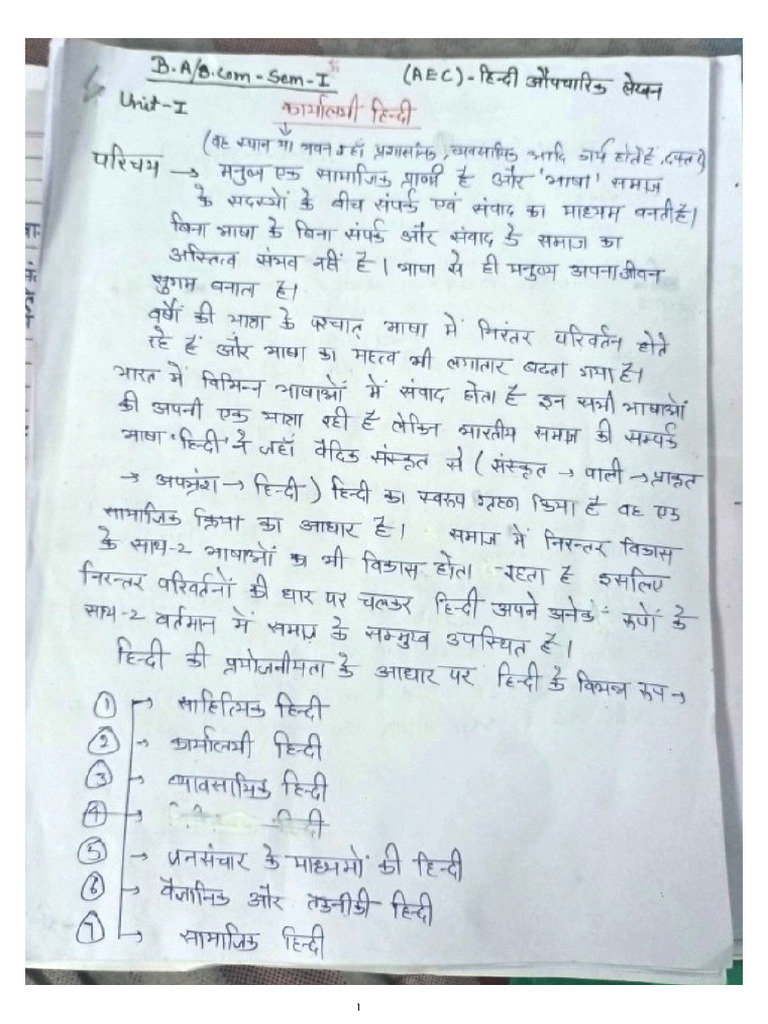 B.A/B.Com - Sem - I
(AEC) - हिन्दी औपचारिक लेखन
Unit-I
कार्यालयी हिन्दी
(वह स्थान या भवन जहाँ प्रशासनिक, व्यवसायिक आदि कार्य होते हैं, दफ्तर)
परिचय → मनुष्य एक सामाजिक प्राणी है और 'भाषा' समाज
के सदस्यों के बीच संपर्क एवं संवाद का माध्यम बनती है।
बिना भाषा के बिना संपर्क और संवाद के समाज का
अस्तित्व संभव नहीं है। भाषा से ही मनुष्य अपना जीवन
सुगम बनाता है।
वर्षों की यात्रा के पश्चात् भाषा में निरंतर परिवर्तन होते
रहे हैं और भाषा का महत्व भी लगातार बढता गया है।
भारत में विभिन्न भाषाओं में संवाद होता है इन सभी भाषाओं
की अपनी एक यात्रा रही है लेकिन भारतीय समाज की सम्पर्क
भाषा 'हिन्दी' ने जहाँ वैदिक संस्कृत से (संस्कृत → पाली → प्राकृत
→ अपभ्रंश → हिन्दी) हिन्दी का स्वरूप ग्रहण किया है वह एक
सामाजिक क्रिया का आधार है। समाज में निरन्तर विकास
के साथ-2 भाषाओं का भी विकास होता रहता है इसलिए
निरन्तर परिवर्तनों की धार पर चलकर हिन्दी अपने अनेकों रूपों के
साथ-2 वर्तमान में समाज के सम्मुख उपस्थित है।
हिन्दी की प्रयोजनीयता के आधार पर हिन्दी के विभिन्न रूप →
① → साहित्यिक हिन्दी
② → कार्यालयी हिन्दी
③ → व्यावसायिक हिन्दी
④ → हिन्दी
⑤ → जनसंचार के माध्यमों की हिन्दी
⑥ → वैज्ञानिक और तकनीकी हिन्दी
⑦ → सामाजिक हिन्दी
1